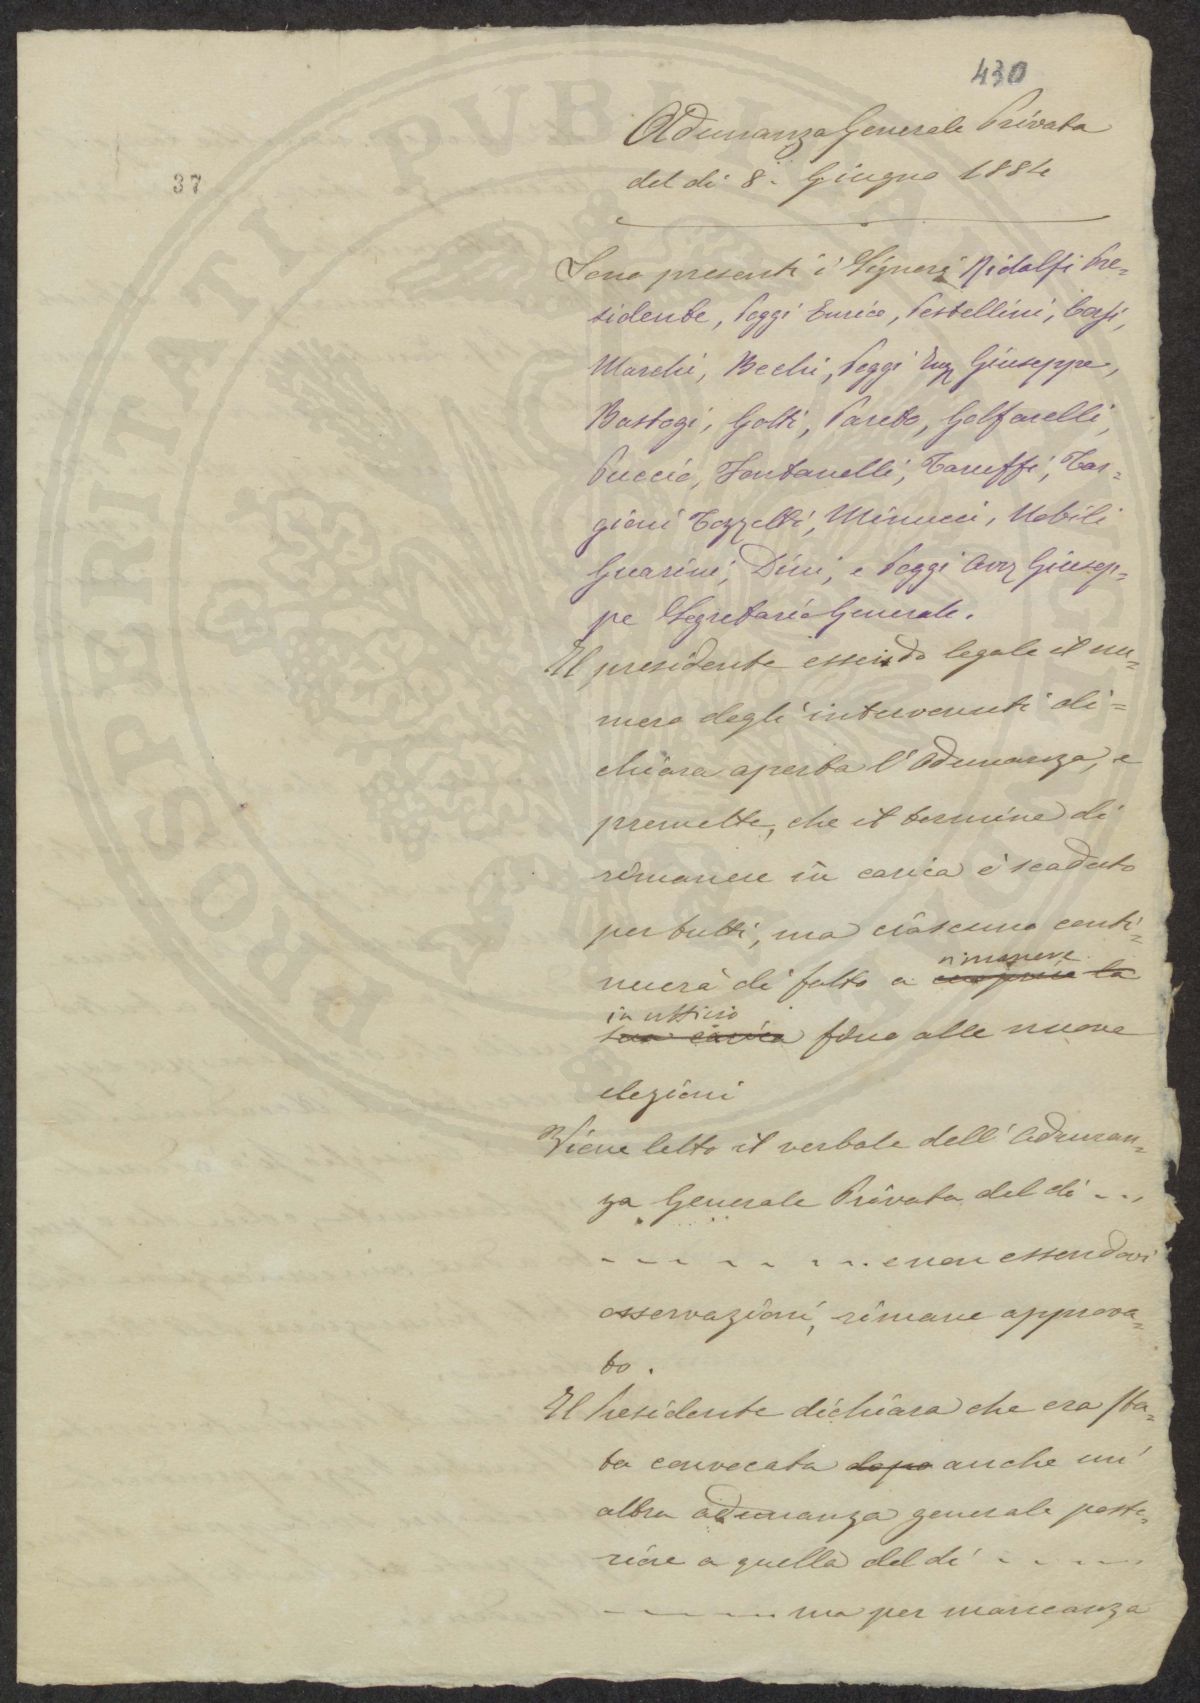 430
37
Adunanza Generale Privata
del dì 8. Giugno 1884
Sono presenti i Signori Ridolfi Pre=
sidente, Poggi Enrico, Pestellini, Corsi,
Marchi, Bechi, Poggi Ing Giuseppe,
Bastogi, Gotti, Pareto, Golfarelli,
Puccio, Fontanelli, Taruffi, Tar=
gioni Tozzetti, Minucci, Nobili
Guarini, Dini, e Poggi Avv Giusep=
pe Segretario Generale.
Il presidente essendo legale il nu=
mero degli intervenuti di=
chiara aperta l'Adunanza, e
premette, che il termine di
rimanere in carica è scaduto
per tutti, ma ciascuno conti=
rimanere
nuerà di fatto a la
in ufficio
sua carica fino alle nuove
elezioni
Viene letto il verbale dell'Adunan=
za Generale Privata del dì - - ,
- - - - - - - . e non essendovi
osservazioni, rimane approva=
to.
Il Presidente dichiara che era sta=
ta convocata dopo anche un'
altra adunanza generale poste=
riore a quella del dì - - - - -
- - - - - - ma per mancanza
PROSPERITATI PVBLICAE AVGENDAE